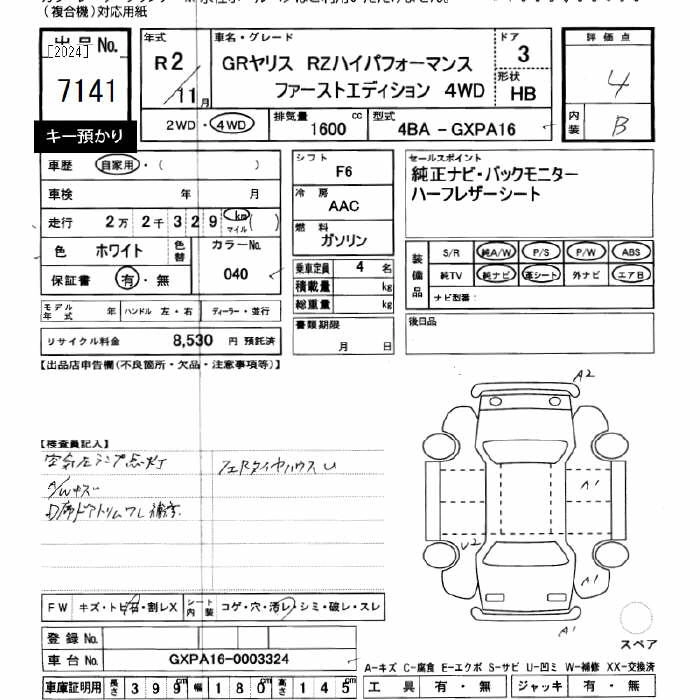 (複合機)対応用紙
出品No.
[2024]
7141
キー預かり
年式 R2/11月
車名・グレード
GRヤリス RZハイパフォーマンス
ファーストエディション 4WD
ドア 3
形状 HB
2WD・4WD
排気量 1600 cc
型式 4BA-GXPA16
評価点
4
内装 B
車歴 自家用・( )
車検 年 月
走行 2万 2千 3 2 9 km マイル ( )
色 ホワイト 色替
カラーNo.
040
保証書 有・無
モデル年式 年 ハンドル 左・右 ディーラー・並行
リサイクル料金 8,530 円 預託済
シフト
F6
冷房
AAC
燃料
ガソリン
乗車定員 4 名
積載量 kg
総重量 kg
書類期限
月 日
セールスポイント
純正ナビ・バックモニター
ハーフレザーシート
装備品
S/R 純A/W P/S P/W ABS
純TV 純ナビ 革シート 外ナビ エアB
ナビ型番:
後日品
【出品店申告欄(不良箇所・欠品・注意事項等)】
【検査員記入】
空気圧ランプ点灯
A/Wキズ
D席ドアトリムワレ補修
A2
A1
U2
A1
A1
スペア
FW キズ・トビ石・割レX
シート内装 コゲ・穴・汚レ・シミ・破レ・スレ
登録No.
車台No. GXPA16-0003324
車庫証明用 長さ 399cm 幅 180cm 高さ 145cm
A-キズ C-腐食 E-エクボ S-サビ U-凹ミ W-補修 XX-交換済
工具 有・無 ジャッキ 有・無